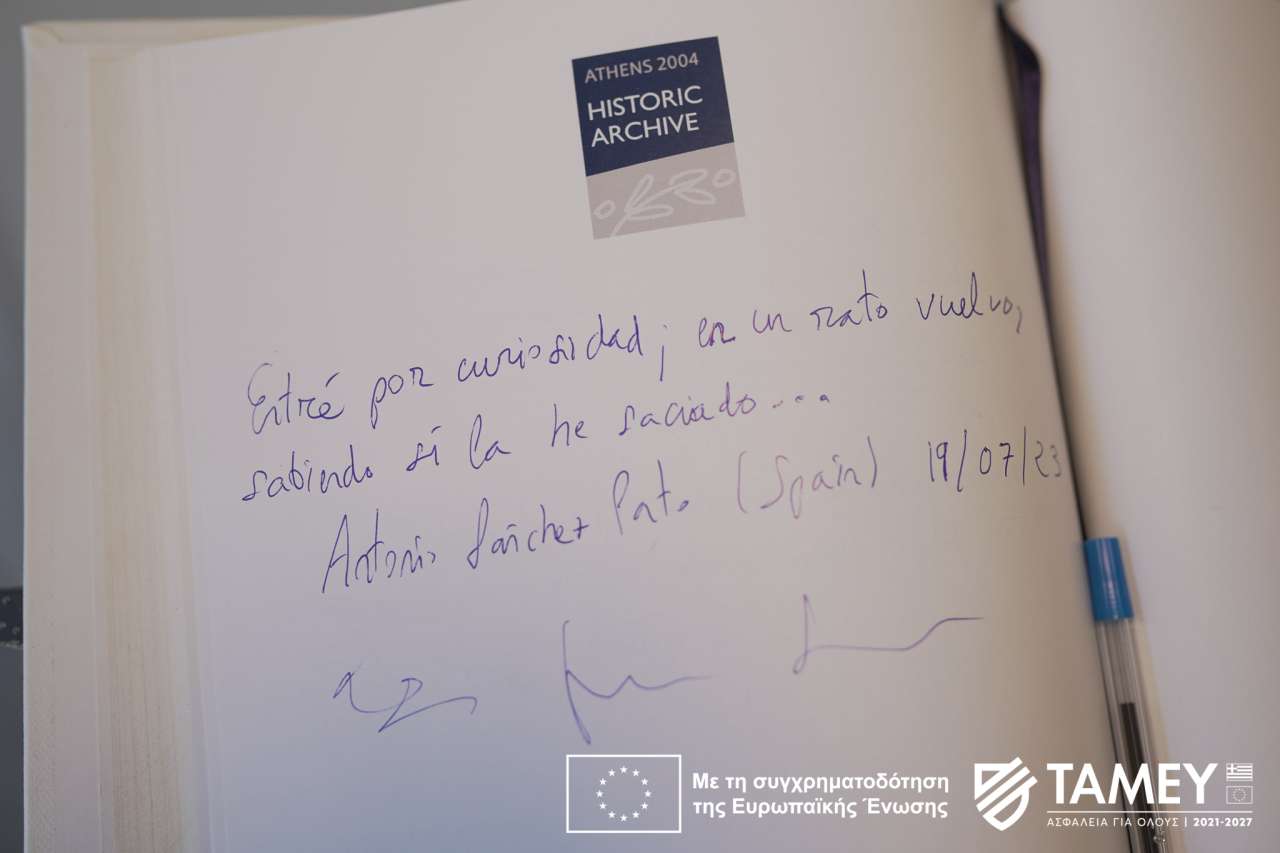 ATHENS 2004
HISTORIC
ARCHIVE
Entré por curiosidad; en un rato vuelvo,
sabiendo si la he saciado...
Antonio Sánchez Pato (Spain) 19/07/23
Με τη συγχρηματοδότηση
της Ευρωπαϊκής Ένωσης
TAMEY
ΑΣΦΑΛΕΙΑ ΓΙΑ ΟΛΟΥΣ | 2021-2027